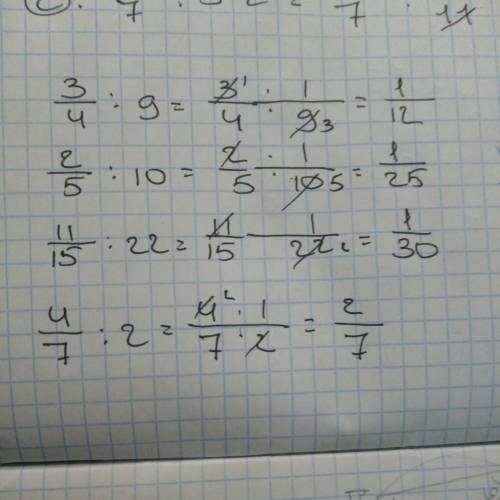 3/4 : 9 = 3¹/4 : 1/9₃ = 1/12
2/5 : 10 = 2/5 : 1/10 5 = 1/25
11/15 : 22 = 11/15 - 1/22 ₂ = 1/30
4/7 : 2 = 4² · 1/7 · 2 = 2/7